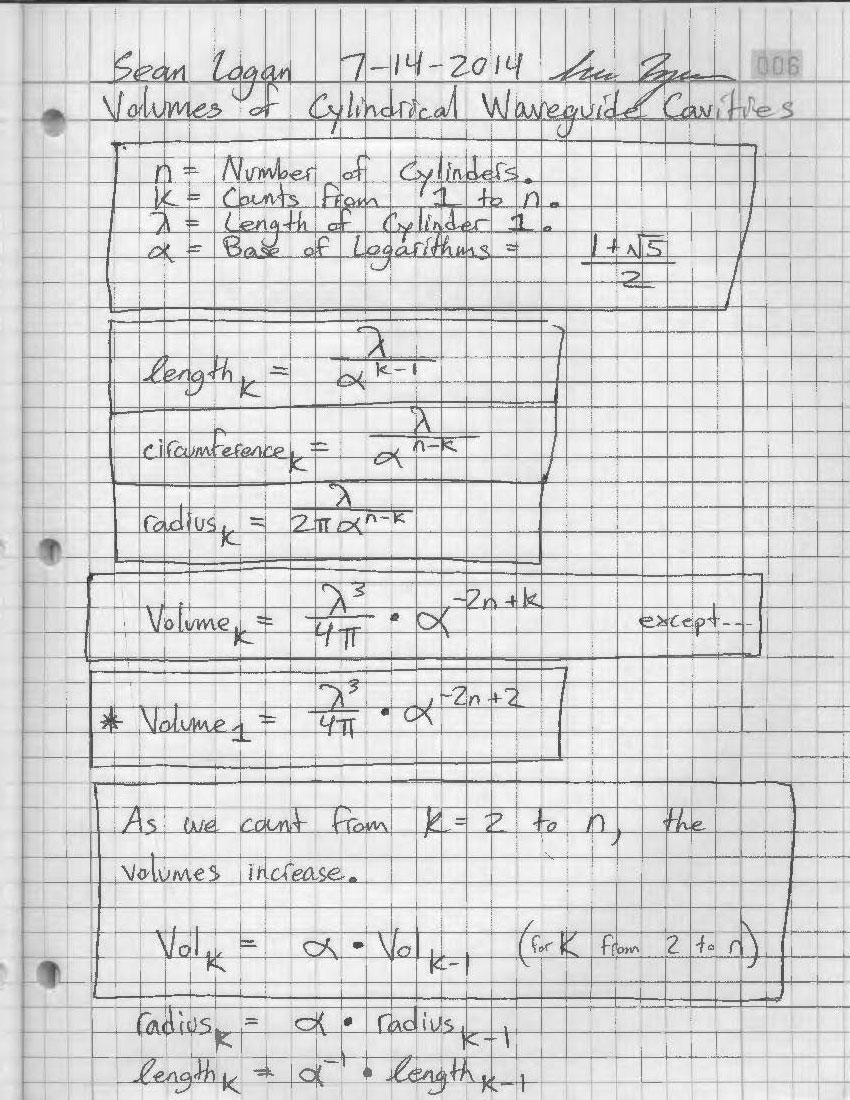 Sean Logan 7-14-2014 006
Volumes of Cylindrical Waveguide Cavities
n = Number of Cylinders.
k = Counts from 1 to n.
λ = Length of Cylinder 1.
α = Base of Logarithms = (1+√5)/2
length_k = λ/α^(k-1)
circumference_k = λ/α^(n-k)
radius_k = λ/(2πα^(n-k))
Volume_k = λ³/4π • α^(-2n+k) except---
* Volume_1 = λ³/4π • α^(-2n+2)
As we count from k = 2 to n, the
volumes increase.
Vol_k = α • Vol_(k-1) (for k from 2 to n)
radius_k = α • radius_(k-1)
length_k = α^(-1) • length_(k-1)